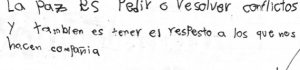 La paz es Pedir o resolver conflictos
y tambien es tener el respeto a los que nos
hacen compañia